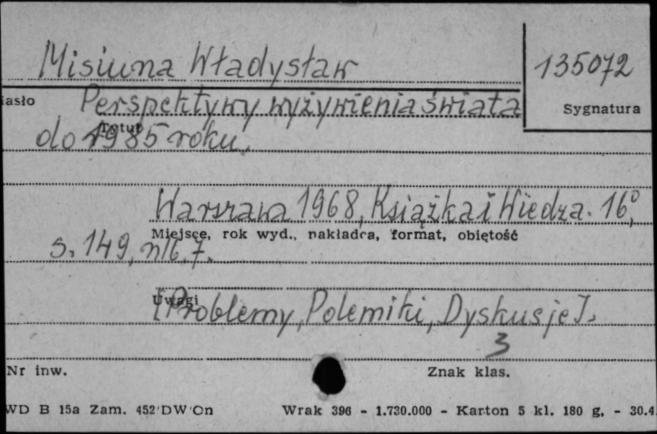 Misiuna Władysław 135072
iasło Perspektywy wyżywienia świata Sygnatura
do 1985 roku.
Warszawa 1968, Książka i Wiedza. 16°,
Miejsce, rok wyd., nakładca, format, objętość
s. 149, nlb. 7.
Uwagi
[Problemy, Polemiki, Dyskusje].
3
Nr inw. Znak klas.
WD B 15a Zam. 452/DW/On Wrak 396 - 1.730.000 - Karton 5 kl. 180 g. - 30.4